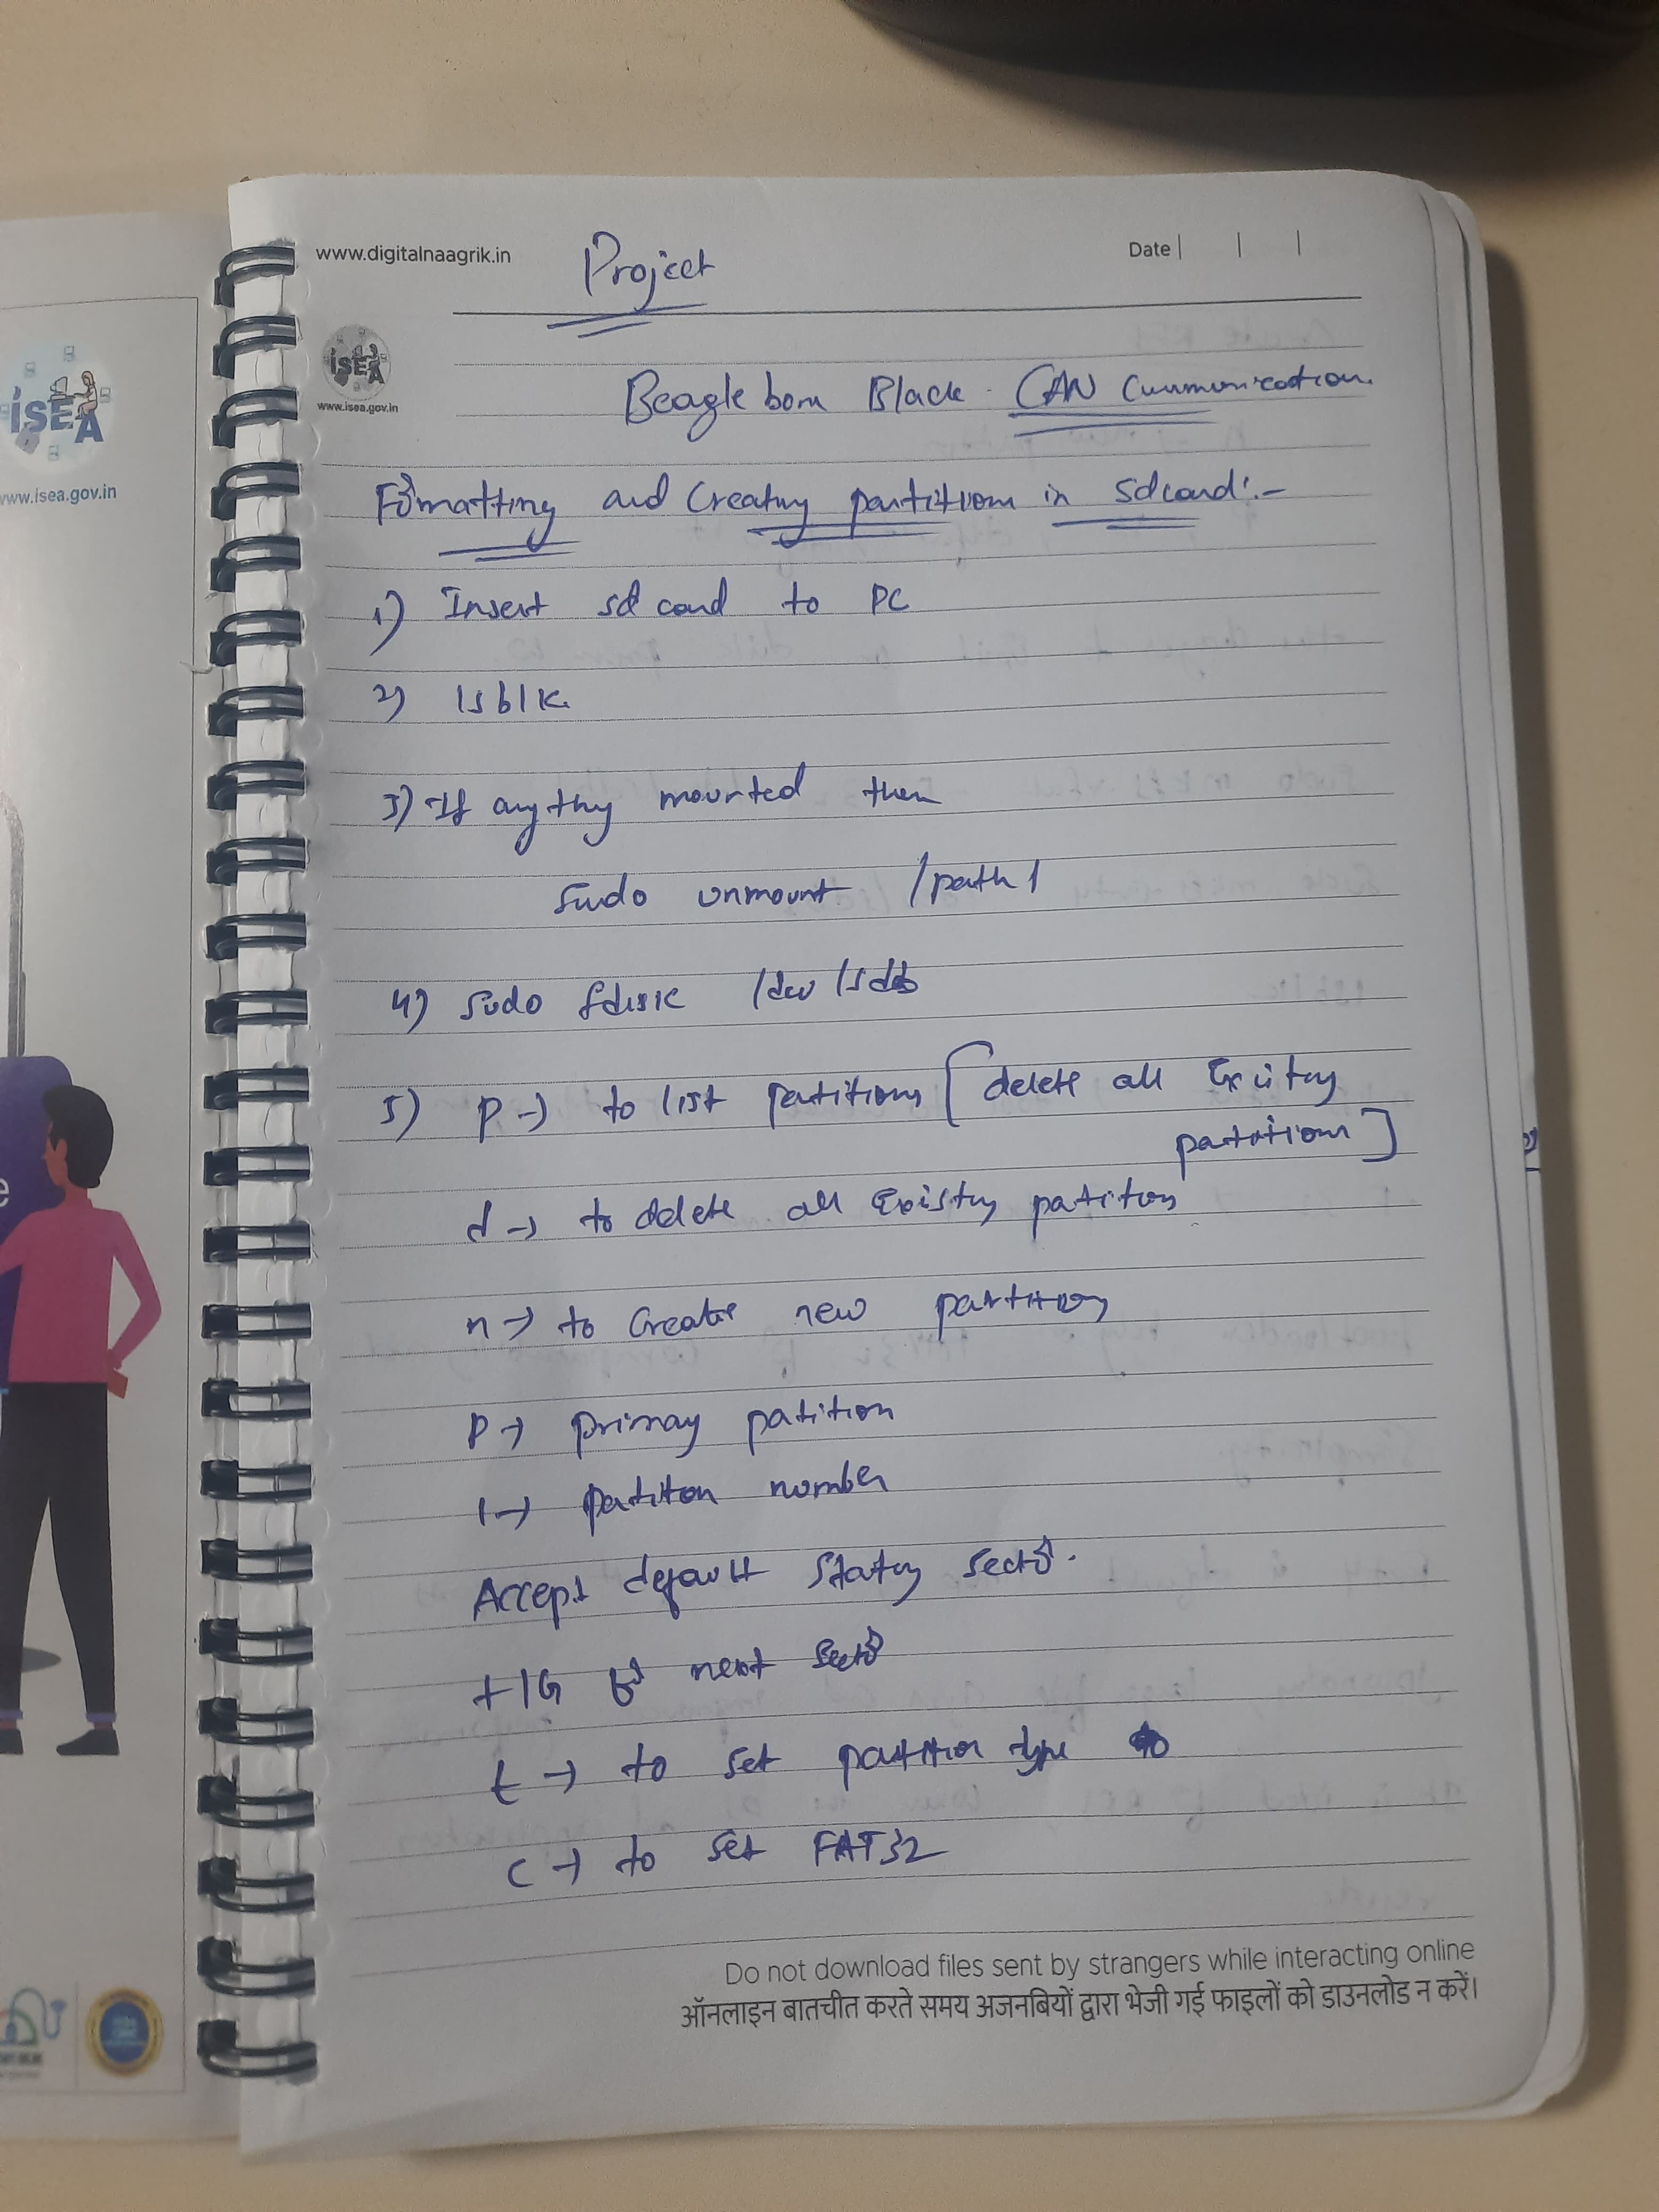 www.digitalnaagrik.in
Project
Date
iSEA
www.isea.gov.in
Beagle bon Black - CAN Cummunication.
Formatting and Creating partitions in sdcard:-
1) Insert sd card to PC
2) lsblk.
3) If anything mounted then
sudo unmount /path/
4) sudo fdisk /dev/sdb
5) p → to list partitions [delete all Existing
partitions]
d → to delete all Existing partitions
n → to Create new partition
p → primary patition
1 → partition number
Accept default Stating sector.
+1G for next sector
t → to set partition type to
c → to set FAT32
Do not download files sent by strangers while interacting online
ऑनलाइन बातचीत करते समय अजनबियों द्वारा भेजी गई फाइलों को डाउनलोड न करें।
iSEA
www.isea.gov.in
e